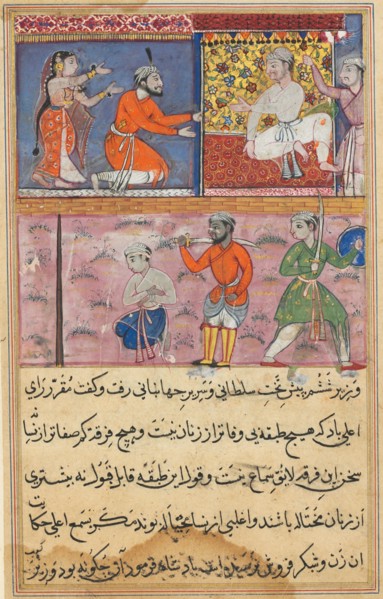 وزیر ششم پیش تخت سلطانی و سریر جهانبانی رفت و گفت مقرر رای
اعلی باد که هیچ طبقه بی وفاتر از زنان نیست و هیچ فرقه کم صفاتر از نسا
سخن این فرقه لایق سماع نیست و قول این طبقه قابل قبول نه بیشتری
از زنان محتاله باشند و اغلبی از نسا بوند مگر بسمع اعلی حکایت
آن زن و شکر فروش نرسیده است پادشاه فرمود آن چگونه بود وزیر